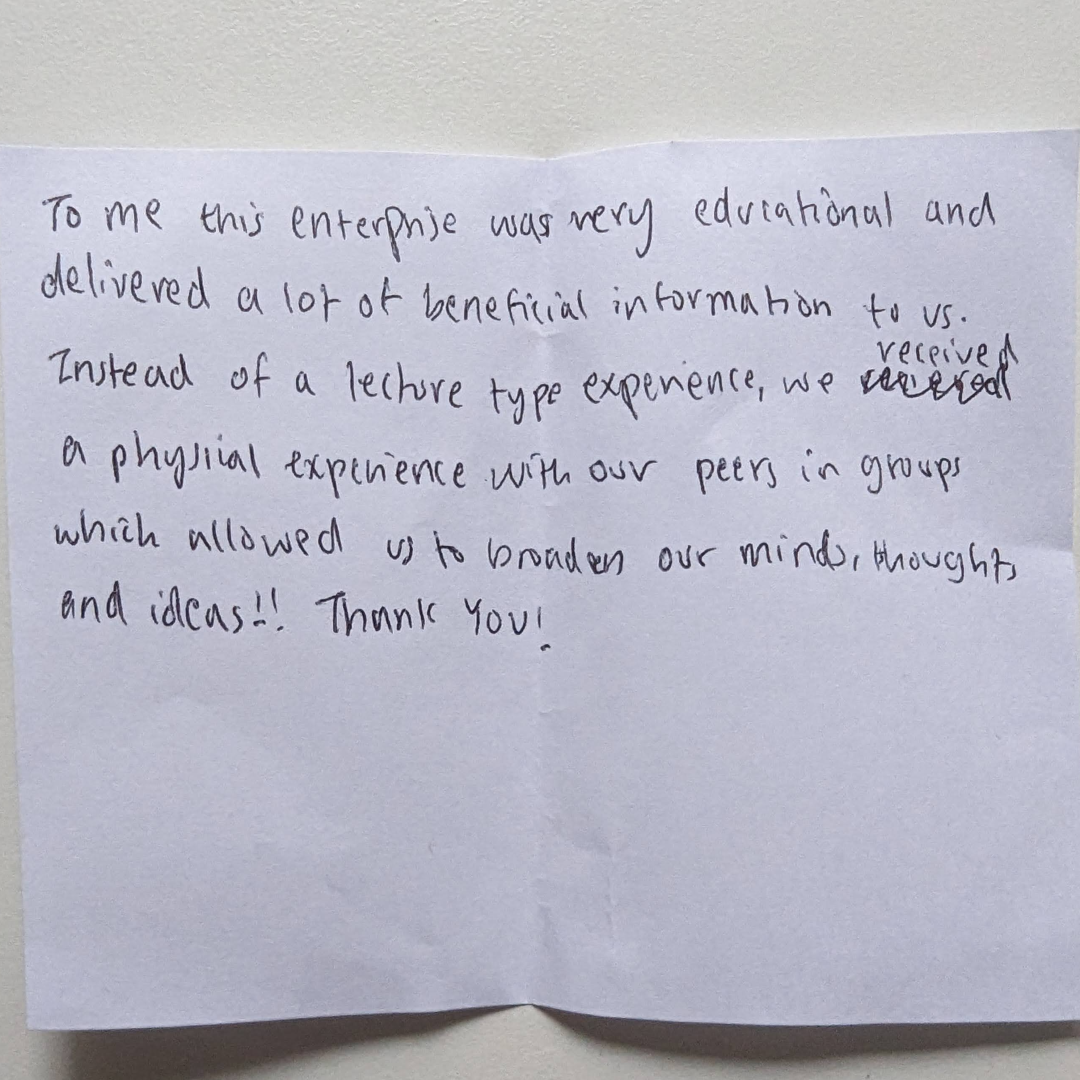 To me this enterprise was very educational and
delivered a lot of beneficial information to us.
Instead of a lecture type experience, we received
a physical experience with our peers in groups
which allowed us to broaden our minds, thoughts
and ideas!! Thank You!